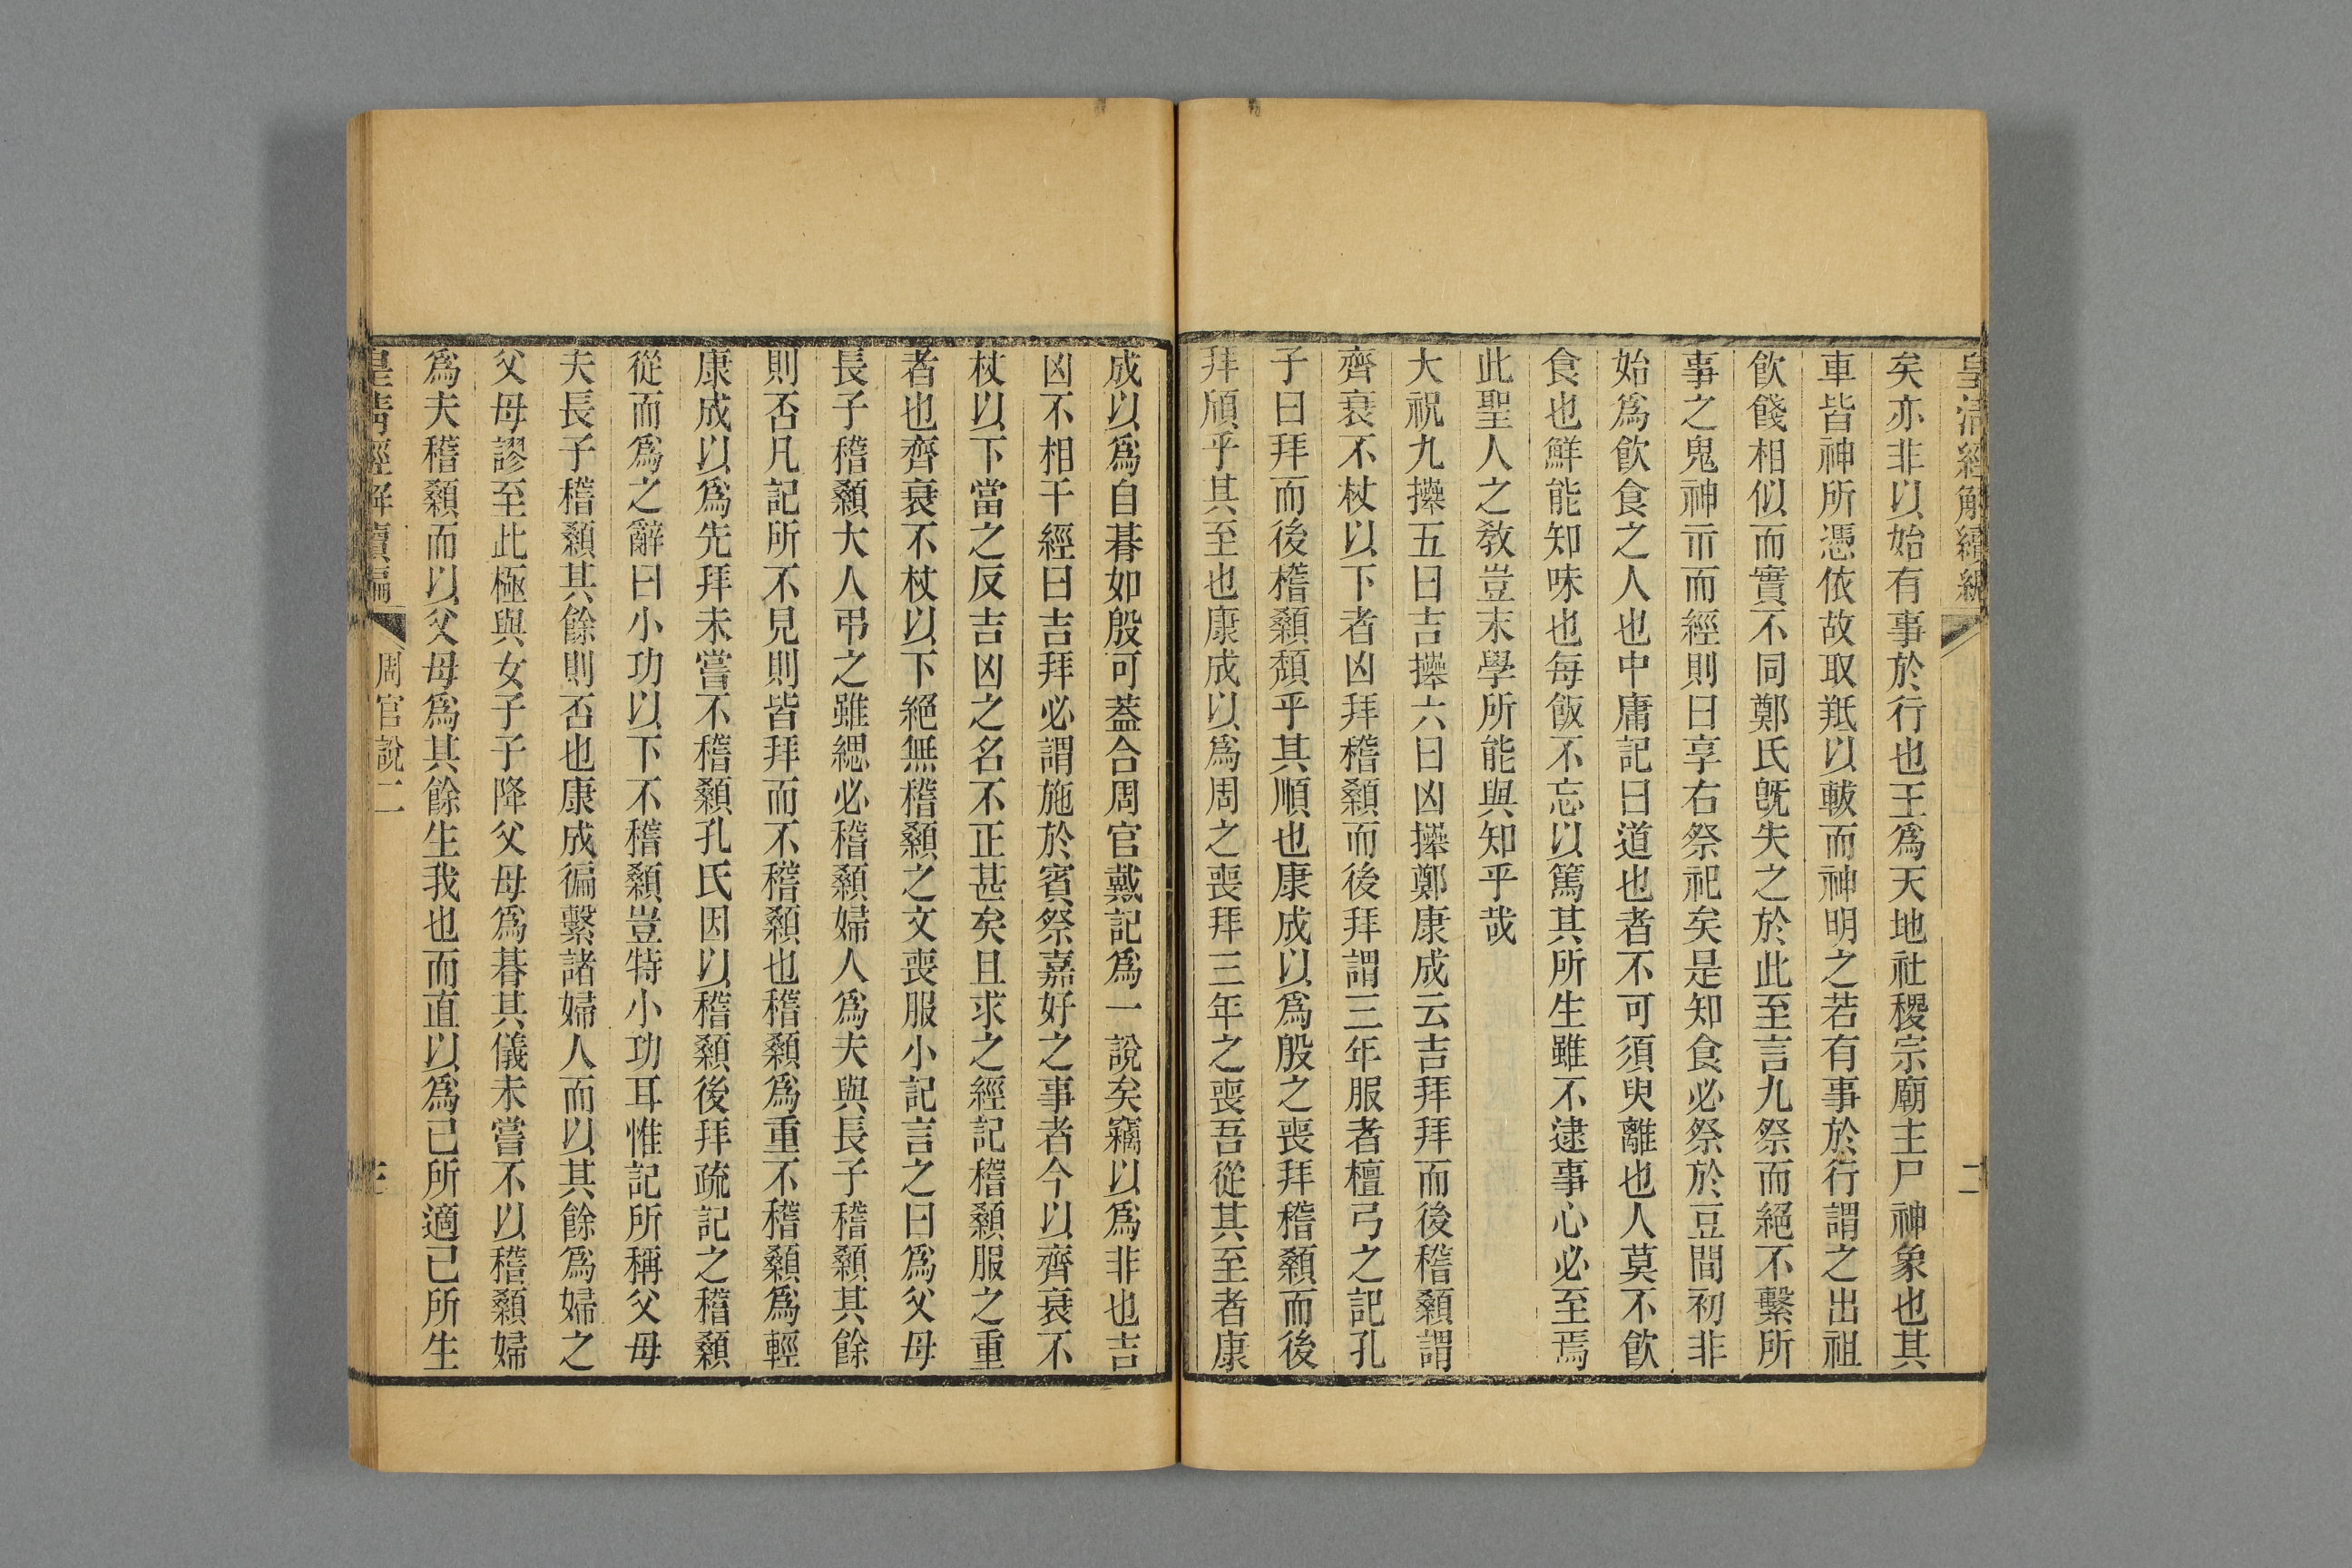 皇清經解續編
二
矣亦非以始有事於行也王爲天地社稷宗廟主尸神象也其
車皆神所憑依故取羝以軷而神明之若有事於行謂之出祖
飮餞相似而實不同鄭氏旣失之於此至言九祭而絕不繫所
事之鬼神示而經則曰享右祭祀矣是知食必祭於豆閒初非
始爲飮食之人也中庸記曰道也者不可須臾離也人莫不飮
食也鮮能知味也每飯不忘以篤其所生雖不逮事心必至焉
此聖人之敎豈末學所能與知乎哉
大祝九𢷎五曰吉𢷎六曰凶𢷎鄭康成云吉拜拜而後稽顙謂
齊衰不杖以下者凶拜稽顙而後拜謂三年服者檀弓之記孔
子曰拜而後稽顙頹乎其順也康成以爲殷之喪拜稽顙而後
拜頎乎其至也康成以爲周之喪拜三年之喪吾從其至者康
成以爲自朞如殷可蓋合周官戴記爲一說矣竊以爲非也吉
凶不相干經曰吉拜必謂施於賓祭嘉好之事者今以齊衰不
杖以下當之反吉凶之名不正甚矣且求之經記稽顙服之重
者也齊衰不杖以下絕無稽顙之文喪服小記言之曰爲父母
長子稽顙大人弔之雖緦必稽顙婦人爲夫與長子稽顙其餘
則否凡記所不見則皆拜而不稽顙也稽顙爲重不稽顙爲輕
康成以爲先拜未嘗不稽顙孔氏因以稽顙後拜疏記之稽顙
從而爲之辭曰小功以下不稽顙豈特小功耳惟記所稱父母
夫長子稽顙其餘則否也康成徧繫諸婦人而以其餘爲婦之
父母謬至此極與女子子降父母爲朞其儀未嘗不以稽顙婦
爲夫稽顙而以父母爲其餘生我也而直以爲已所適已所生
皇清經解續編
周官說二